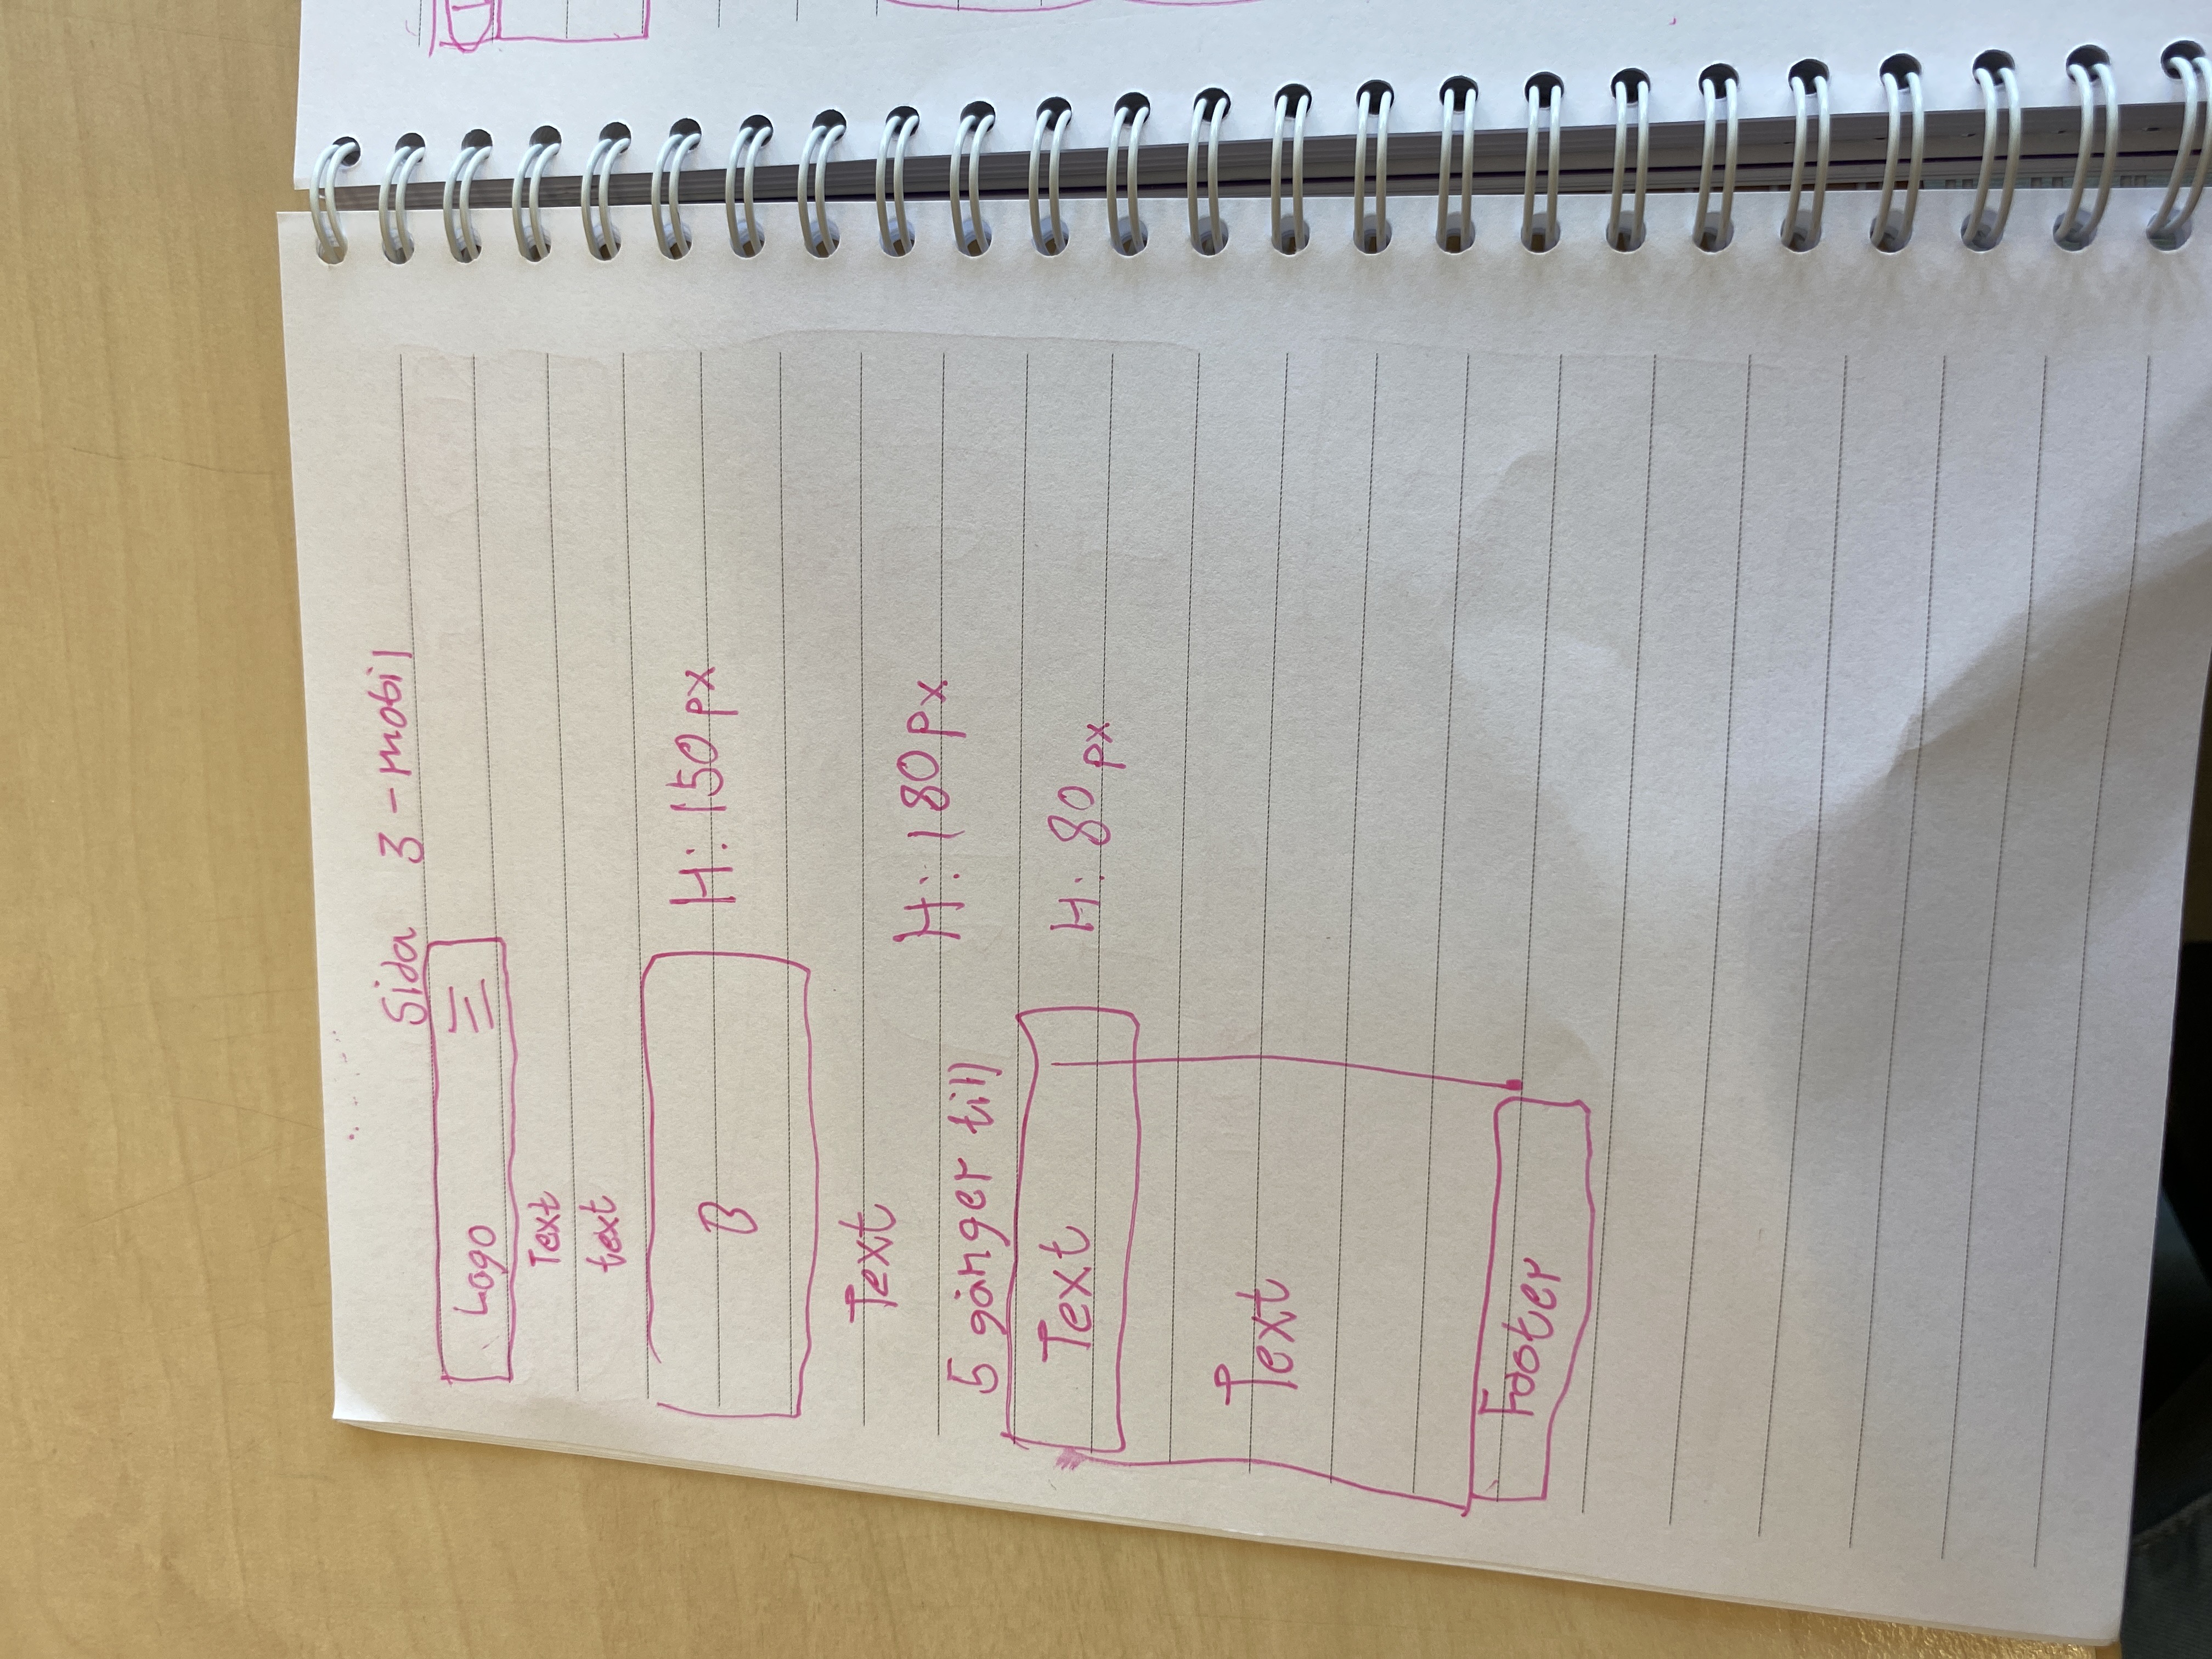 Sida 3 - mobil
Logo
Text
text
B
H: 150 px
Text
H: 180 px
5 gånger till
Text
H: 80 px
Text
Footer